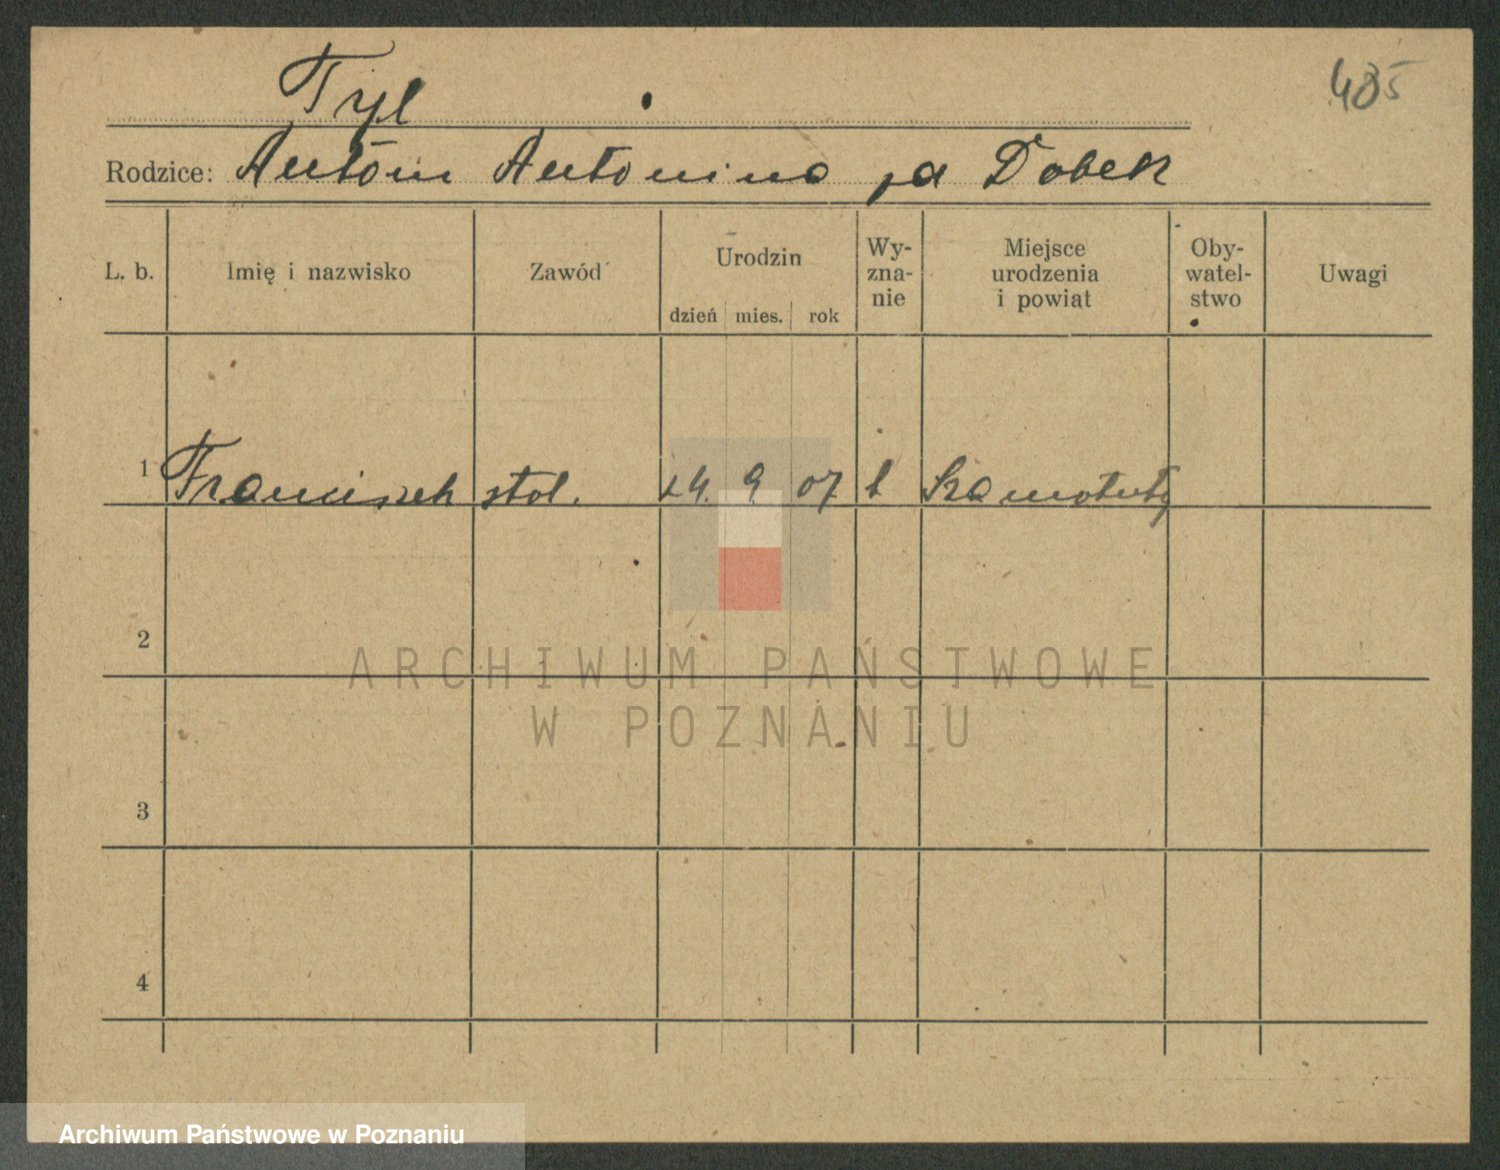 485
Tyl
Rodzice: Antoni Antonina za Dobek
L. b. Imię i nazwisko Zawód Urodzin dzień mies. rok Wy-zna-nie Miejsce urodzenia i powiat Oby-watel-stwo Uwagi
1 Franciszek stol. 24. 9. 07 k Szamotuły
2
3
4
ARCHIWUM PAŃSTWOWE
W POZNANIU
Archiwum Państwowe w Poznaniu